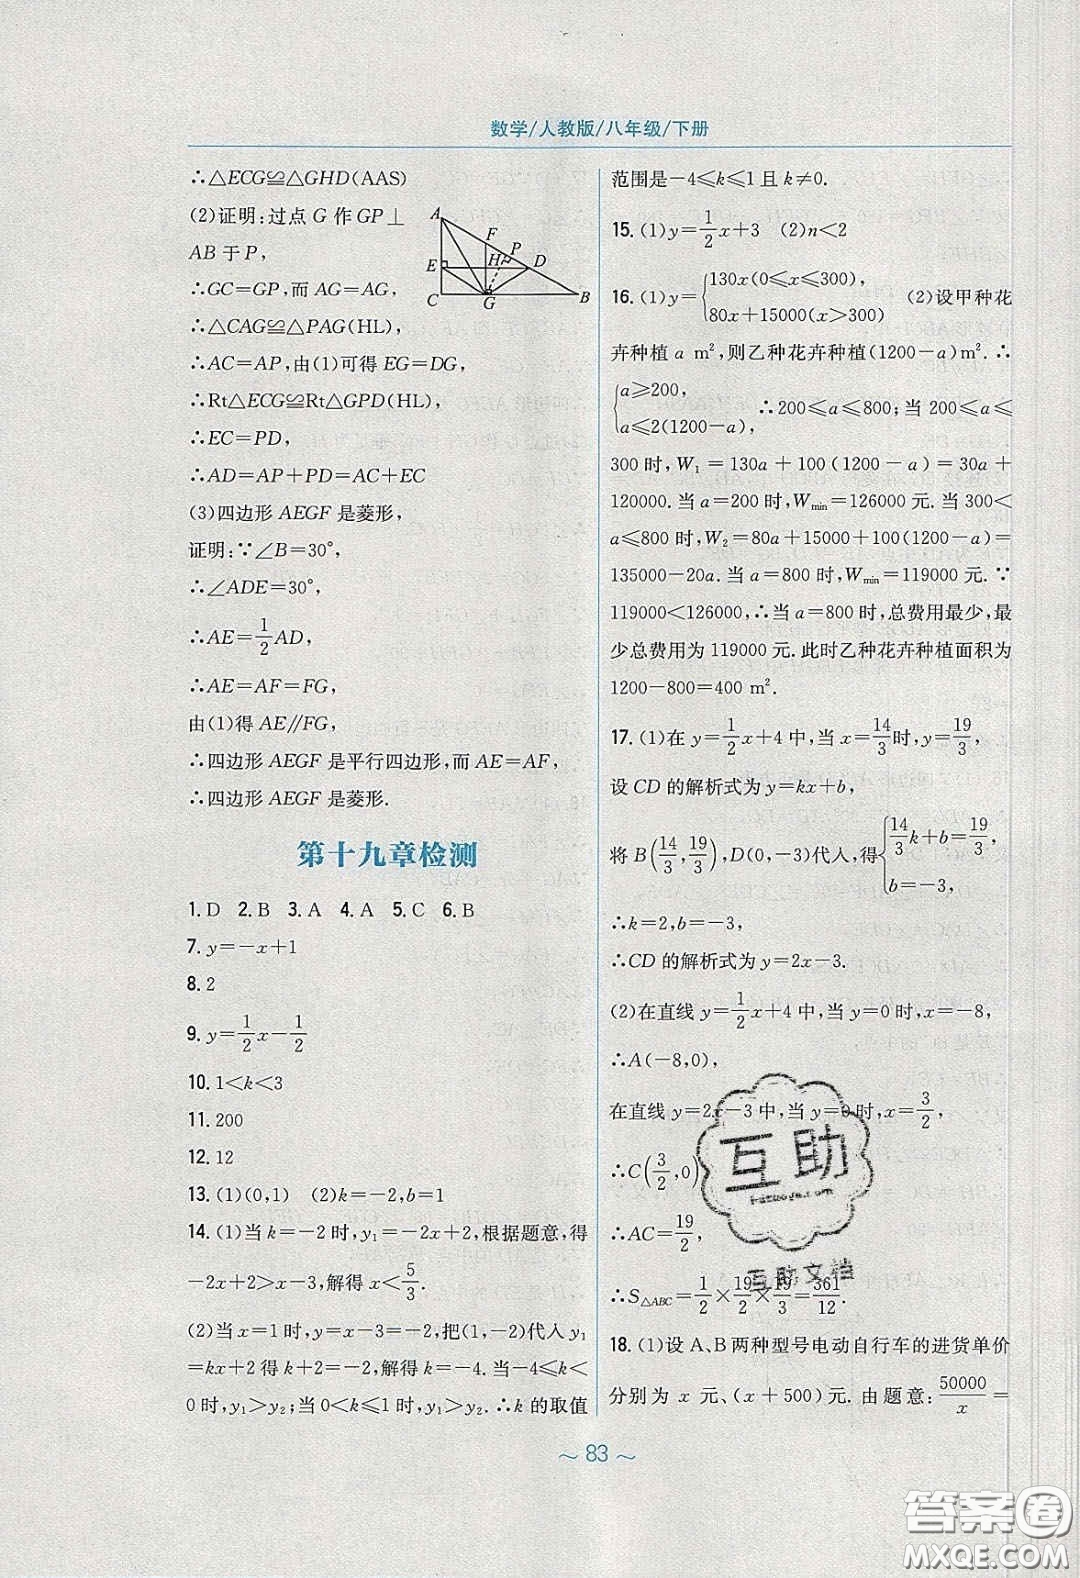 数学/人教版/八年级/下册
∴△ECG≌△GHD(AAS)
(2)证明:过点 G 作 GP⊥
AB 于 P,
∴GC=GP,而 AG=AG,
∴△CAG≌△PAG(HL),
∴AC=AP,由(1)可得 EG=DG,
∴Rt△ECG≌Rt△GPD(HL),
∴EC=PD,
∴AD=AP+PD=AC+EC
(3)四边形 AEGF 是菱形,
证明:∵∠B=30°,
∴∠ADE=30°,
∴AE=1/2AD,
∴AE=AF=FG,
由(1)得 AE∥FG,
∴四边形 AEGF 是平行四边形,而 AE=AF,
∴四边形 AEGF 是菱形.
A
F
P
E
H
D
C
G
B
第十九章检测
1. D 2. B 3. A 4. A 5. C 6. B
7. y=-x+1
8. 2
9. y=1/2x-1/2
10. 1<k<3
11. 200
12. 12
13. (1)(0,1) (2)k=-2,b=1
14. (1)当 k=-2 时,y₁=-2x+2,根据题意,得
-2x+2>x-3,解得 x<5/3.
(2)当 x=1 时,y=x-3=-2,把(1,-2)代入 y₁
=kx+2 得 k+2=-2,解得 k=-4. 当-4≤k<
0 时,y₁>y₂;当 0<k≤1 时,y₁>y₂. ∴k 的取值
范围是-4≤k≤1 且 k≠0.
15. (1)y=1/2x+3 (2)n<2
16. (1)y={130x(0≤x≤300), 80x+15000(x>300) (2)设甲种花
卉种植 a m²,则乙种花卉种植(1200-a)m². ∴
{a≥200, a≤2(1200-a), ∴200≤a≤800;当 200≤a≤
300 时,W₁=130a+100(1200-a)=30a+
120000. 当 a=200 时,Wmin=126000 元. 当 300<
a≤800 时,W₂=80a+15000+100(1200-a)=
135000-20a. 当 a=800 时,Wmin=119000 元. ∵
119000<126000,∴当 a=800 时,总费用最少,最
少总费用为 119000 元. 此时乙种花卉种植面积为
1200-800=400 m².
17. (1)在 y=1/2x+4 中,当 x=14/3时,y=19/3,
设 CD 的解析式为 y=kx+b,
将 B(14/3,19/3),D(0,-3)代入,得{14/3k+b=19/3, b=-3,
∴k=2,b=-3,
∴CD 的解析式为 y=2x-3.
(2)在直线 y=1/2x+4 中,当 y=0 时,x=-8,
∴A(-8,0),
在直线 y=2x-3 中,当 y=0 时,x=3/2,
∴C(3/2,0)
∴AC=19/2,
∴S△ABC=1/2×19/2×19/3=361/12.
18. (1)设 A、B 两种型号电动自行车的进货单价
分别为 x 元、(x+500)元. 由题意:50000/x=
～ 83 ～
互助
互助文档
答案圈
MXQE.COM